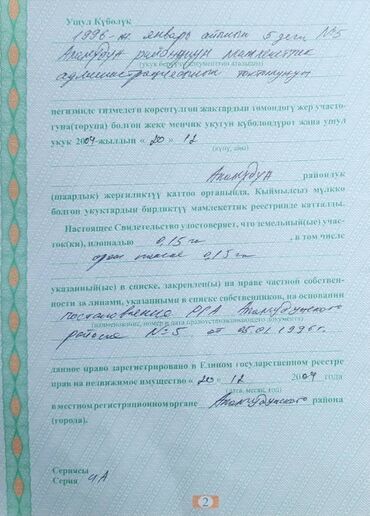 Ушул Күбөлүк
1996-ж. январь айынын 5 деги №5
Аламудун районунун мамлекеттик
(укук берүүчү документтин аталышы)
администрациясынын токтомунун
негизинде тизмедеги көрсөтүлгөн жактардын төмөндөгү жер участо-
гуна(торуна) болгон жеке менчик укугун күбөлөндүрөт жана ушул
укук 2004-жылдын «20» 12
(күнү, айы)
Аламудун райондук
(шаардык) жергиликтүү каттоо органында. Кыймылсыз мүлккө
болгон укуктардын бирдиктүү мамлекеттик реестринде катталды.
Настоящее Свидетельство удостоверяет, что земельный(ые) учас-
ток(ки), площадью 0,15 га , в том числе
0,15 га
указанный(ые) в списке, закреплен(ы) на праве частной собствен-
ности за лицами, указанными в списке собственников, на основании
постановление РГА Аламудунского
(наименование, номер и дата правоустанавливающего документа)
района №5 от 05.01.1996г.
данное право зарегистрировано в Едином государственном реестре
прав на недвижимое имущество «20» 12 2004 года
(дата, месяц, год)
в местном регистрационном органе Аламудунского района
(города).
Сериясы
Серия ЧА
2